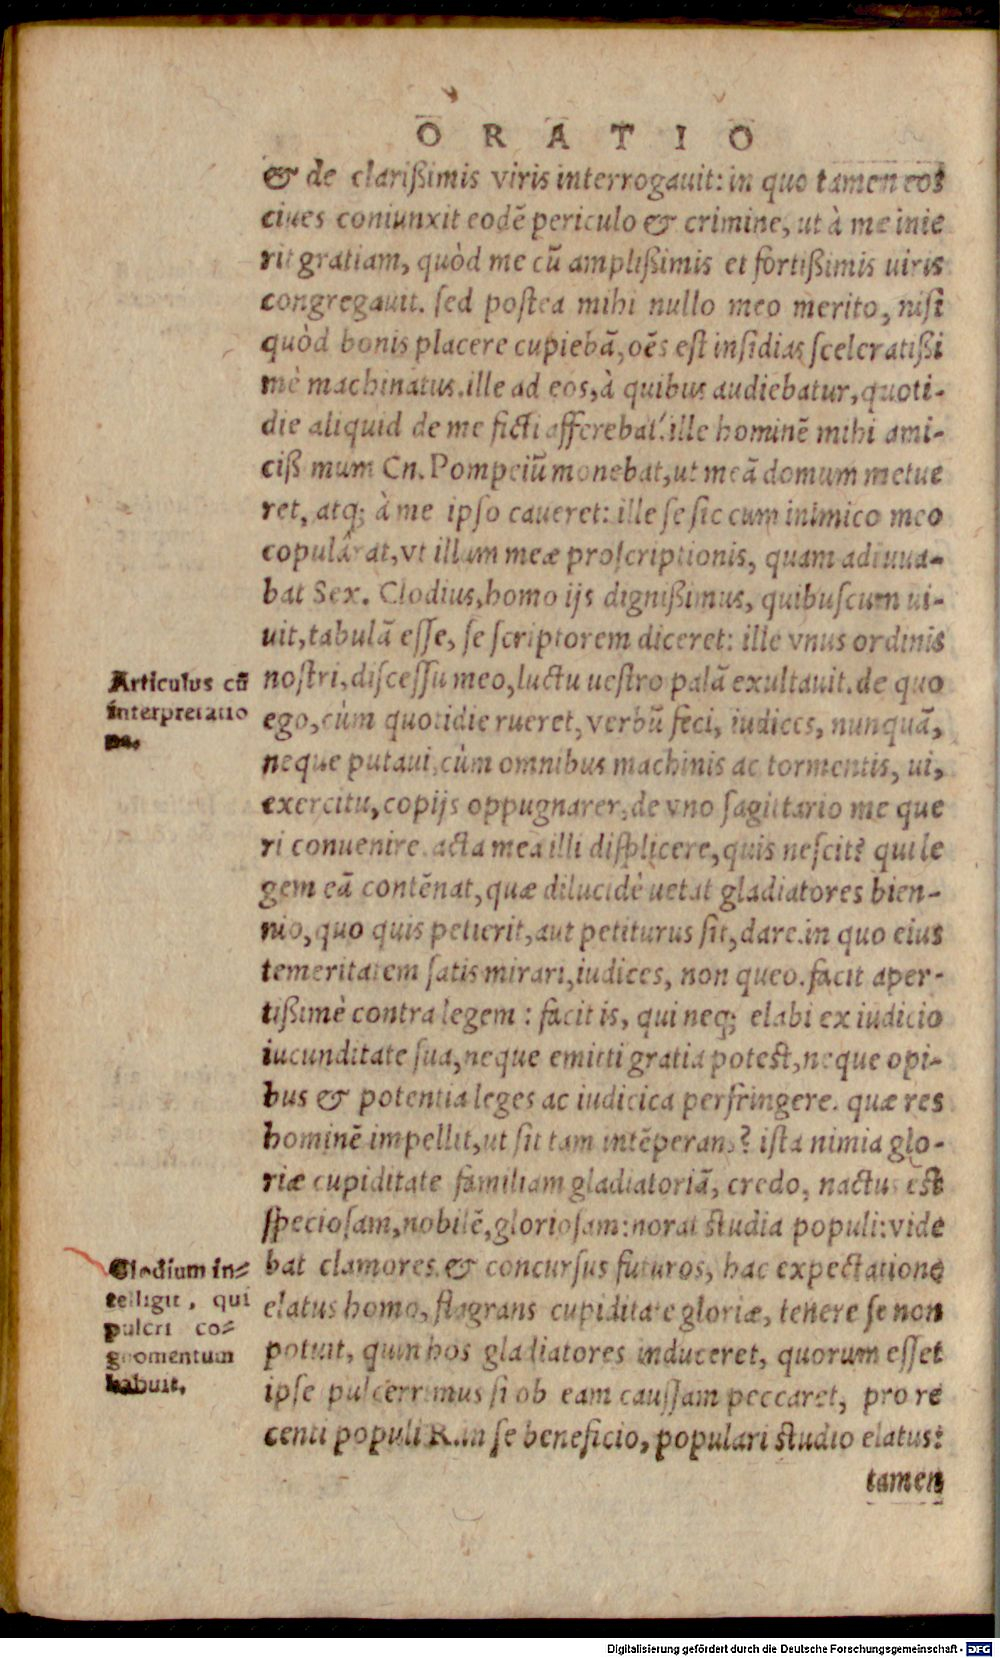 ORATIO
& de clarißimis viris interrogauit: in quo tamen eos
ciues coniunxit eodē periculo & crimine, ut à me inie
rit gratiam, quòd me cū amplißimis et fortißimis uiris
congregauit. sed postea mihi nullo meo merito, nisi
quòd bonis placere cupiebā, oēs est insidias sceleratißi
mè machinatus. ille ad eos, à quibus audiebatur, quoti-
die aliquid de me ficti afferebat: ille hominē mihi ami-
cißmum Cn. Pompeiū monebat, ut meā domum metue
ret, atq; à me ipso caueret: ille se sic cum inimico meo
copulârat, vt illam meæ proscriptionis, quam adiuua-
bat Sex. Clodius, homo ijs dignißimus, quibuscum ui-
uit, tabulā esse, se scriptorem diceret: ille vnus ordinis
nostri, discessu meo, luctu uestro palā exultauit. de quo
ego, cùm quotidie rueret, verbū feci, iudices, nunquā,
neque putaui, cùm omnibus machinis ac tormentis, ui,
exercitu, copijs oppugnarer, de vno sagittario me que
ri conuenire. acta mea illi displicere, quis nescit? qui le
gem eā contēnat, quæ dilucidè uetat gladiatores bien-
nio, quo quis petierit, aut petiturus sit, dare. in quo eius
temeritatem satis mirari, iudices, non queo. facit aper-
tißimè contra legem: facit is, qui neq; elabi ex iudicio
iucunditate sua, neque emitti gratia potest, neque opi-
bus & potentia leges ac iudicica perfringere. quæ res
hominē impellit, ut sit tam intēperans? ista nimia glo-
riæ cupiditate familiam gladiatoriā, credo, nactus est
speciosam, nobilē, gloriosam: norat studia populi: vide
bat clamores & concursus futuros, hac expectatione
elatus homo, flagrans cupiditate gloriæ, tenere se non
potuit, quin hos gladiatores induceret, quorum esset
ipse pulcerrimus si ob eam caussam peccaret, pro re
centi populi R. in se beneficio, populari studio elatus:
tamen
Articulus cū
interpretatio
ne.
Clodium in-
telligit, qui
pulcri co-
gnomentum
habuit.
Digitalisierung gefördert durch die Deutsche Forschungsgemeinschaft - DFG